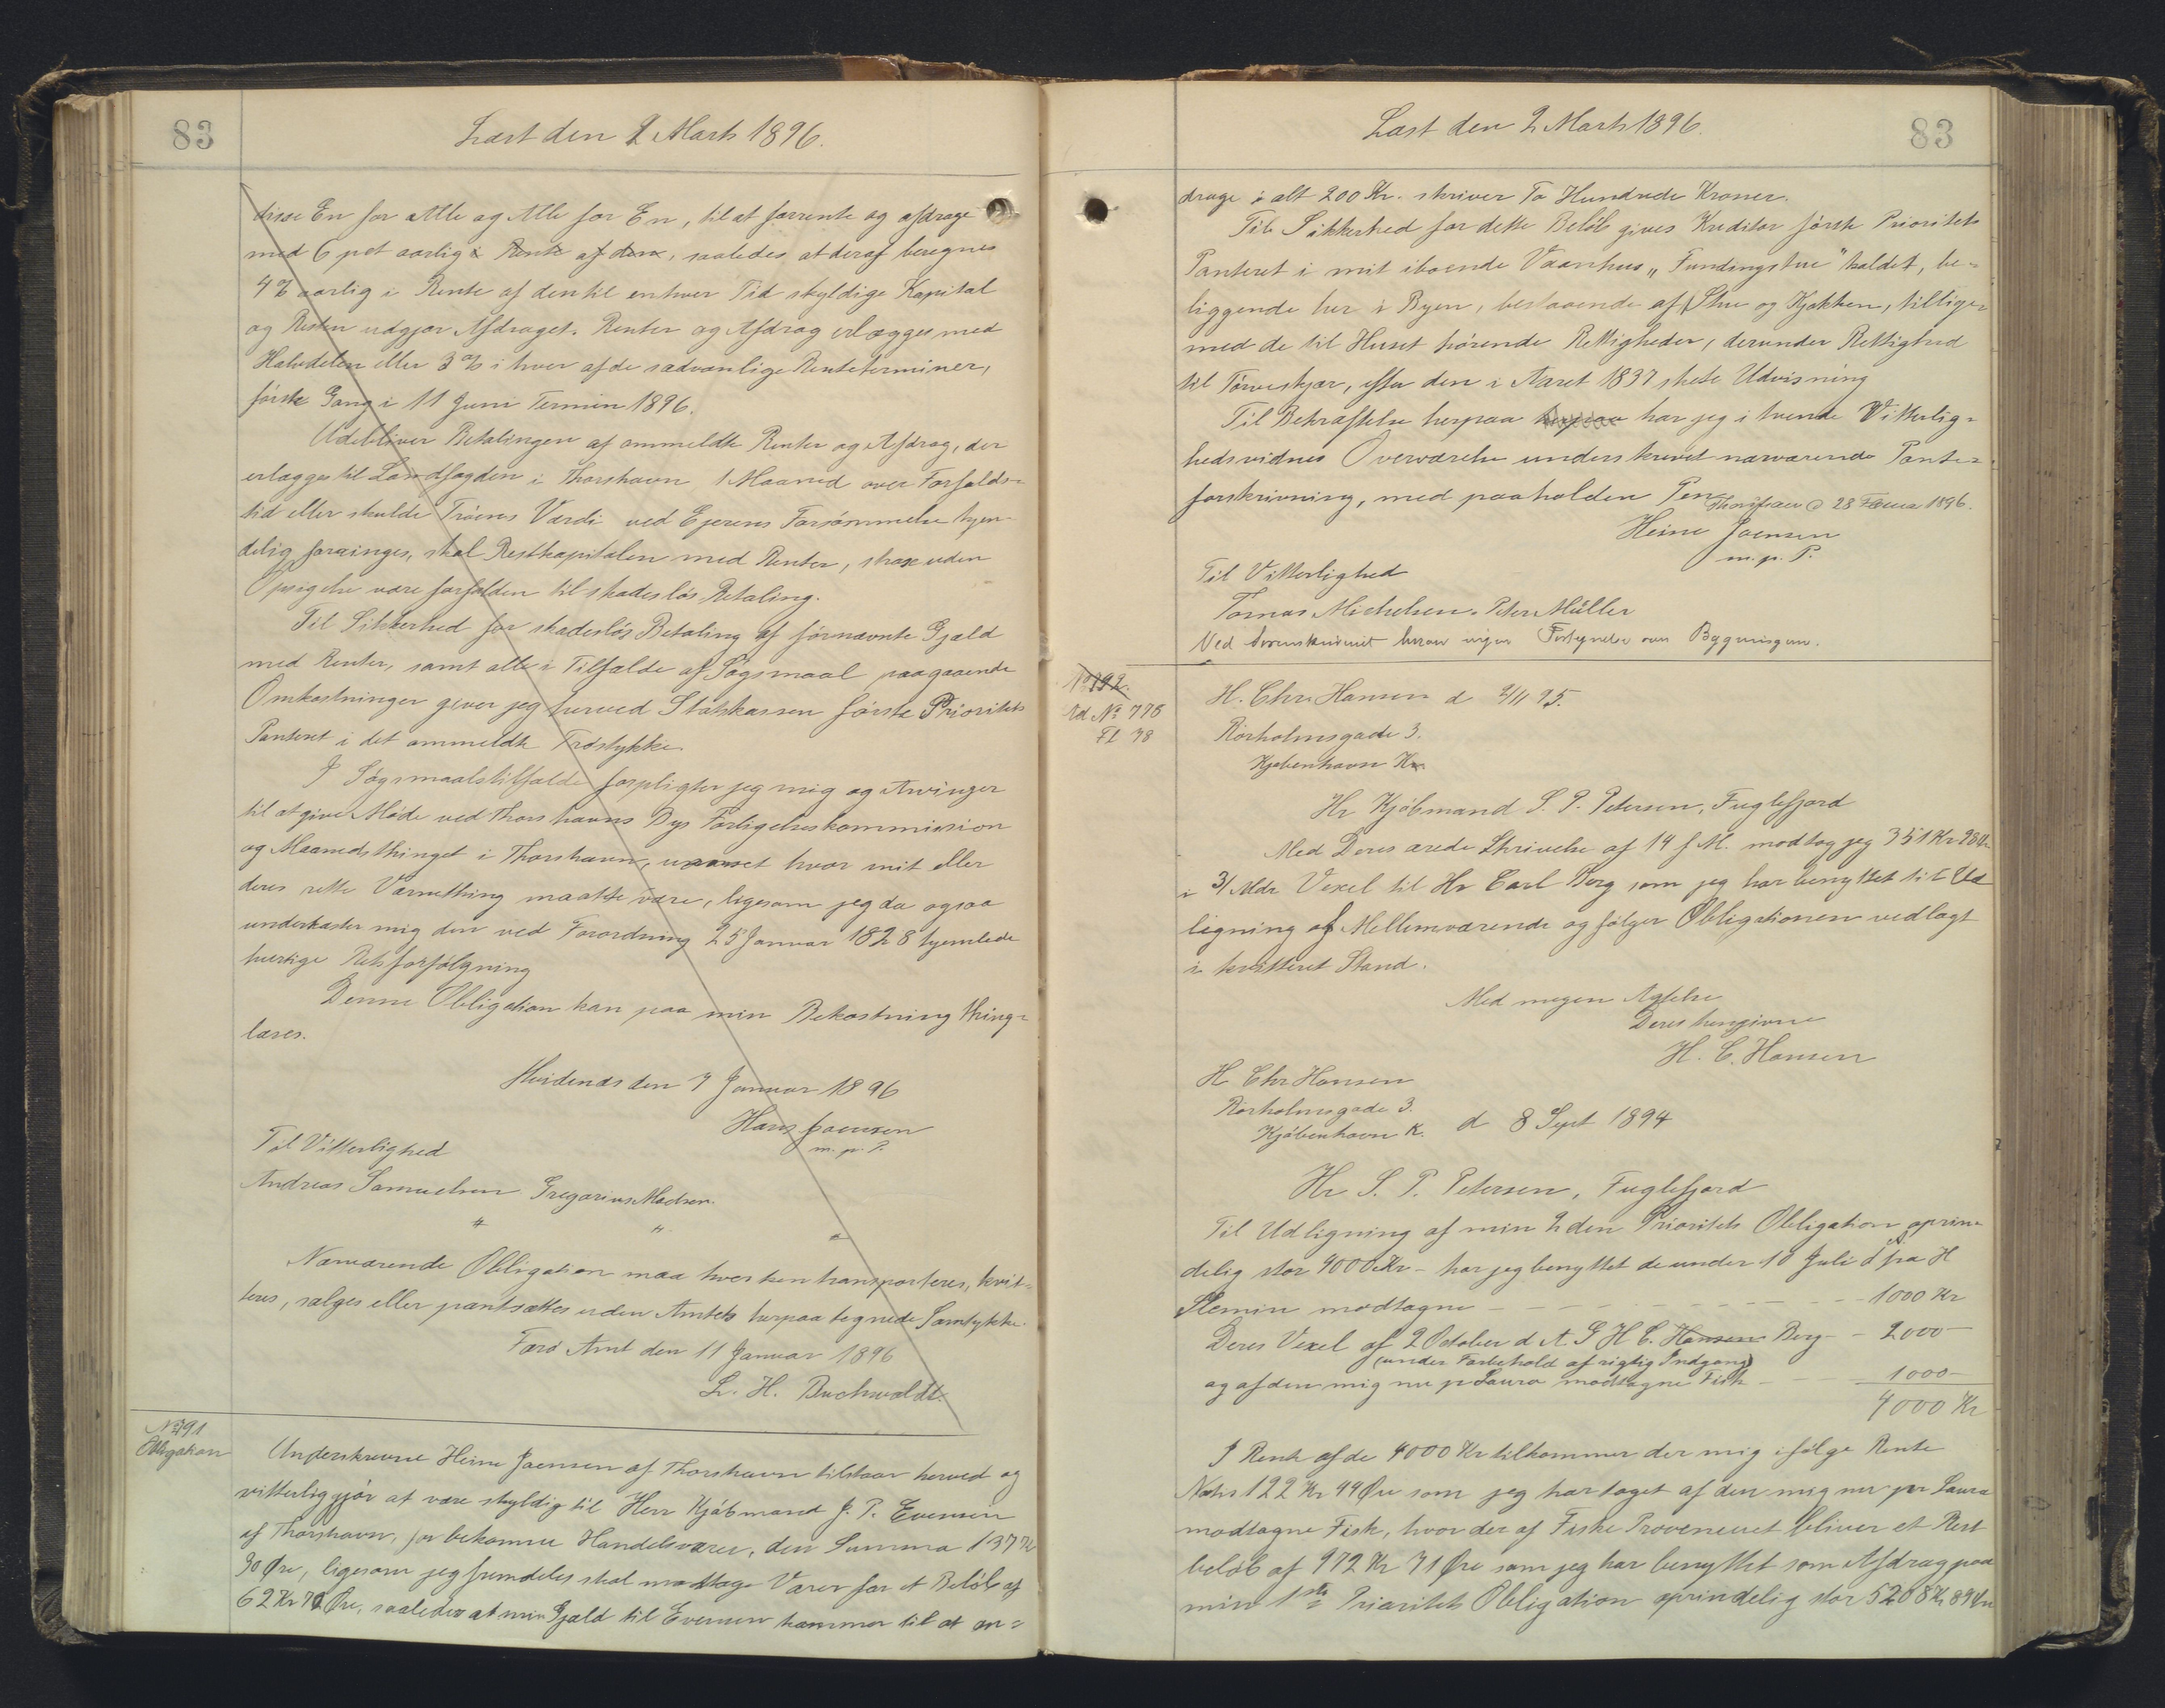 83
Læst den 2 Marts 1896.
disse En for Alle og Alle for En, til at forrente og afdrage
med 6 pct aarlig i Rente af dem, saaledes at deraf beregnes
4 % aarlig i Rente af den til enhver Tid skyldige Kapital
og Resten udgjør Afdraget. Renter og Afdrag erlægges med
Halvdelen eller 3 % i hver af de sædvanlige Renteterminer,
første Gang i 11 Juni Termin 1896.
Udebliver Betalingen af ommeldte Renter og Afdrag, der
erlægges til Landfogden i Thorshavn 1 Maaned over Forfalds-
tid eller skulde Trøens Værdi ved Ejerens Forsømmelse kjen-
delig forringes, skal Restkapitalen med Renter, strax uden
Opsigelse være forfalden til skadesløs Betaling.
Til Sikkerhed for skadesløs Betaling af førnævnte Gjæld
med Renter, samt alle i Tilfælde af Søgsmaal paagaaende
Omkostninger giver jeg herved Statskassen første Prioritets
Panteret i det ommeldte Trøstykke.
I Søgsmaalstilfælde forpligter jeg mig og Arvinger
til at give Møde ved Thorshavns Bys Forligelseskommission
og Maanedsthinget i Thorshavn, uanset hvor mit eller
deres rette Værnething maatte være, ligesom jeg da ogsaa
underkaster mig den ved Forordning 25 Januar 1828 hjemlede
hurtige Retsforfølgning
Denne Obligation kan paa min Bekostning thing-
læses.
Hvidenæs den 7 Januar 1896
Hans Joensen
m. p. P.
Til Vitterlighed
Andreas Samuelsen Gregorius Madsen.
" " "
Nærværende Obligation maa hverken transporteres, kvit-
teres, sælges eller pantsættes uden Amtets herpaa tegnede Samtykke.
Færø Amt den 11 Januar 1896
L. H. Buchwaldt.
No 791
Obligation
Underskrevne Heine Joensen af Thorshavn tilstaar herved og
vitterliggjør at være skyldig til Herr Kjøbmand J. P. Evensen
af Thorshavn, for bekomne Handelsvarer, den Summa 137 Kr
30 Øre, ligesom jeg fremdeles skal modtage Varer for et Beløb af
62 Kr 70 Øre, saaledes at min Gjæld til Evensen kommer til at an-
Læst den 2 Marts 1896.
83
drage i alt 200 Kr. skriver To Hundrede Kroner.
Til Sikkerhed for dette Beløb gives Kreditor første Prioritets
Panteret i mit iboende Vaanhus „Fundingstue" kaldet, be-
liggende her i Byen, bestaaende af Stue og Kjøkken, tillige-
med de til Huset hørende Rettigheder, derunder Rettighed
til Tørveskjær, efter den i Aaret 1837 skete Udvisning
Til Bekræftelse herpaa herpaa har jeg i tvende Vitterlig-
hedsvidnes Overværelse underskrevet nærværende Pante-
forskrivning, med paaholden Pen
Thorshavn d 28 Februar 1896.
Heine Joensen
m. p. P.
Til Vitterlighed
Tomas Michelsen. Peter Müller
Ved Brevskriveriet haves ingen Forsynelse over Bygningen.
No 792.
Ad No 778
Fl 78
H. Chr. Hansen d 2/11 95.
Rørholmsgade 3.
Kjøbenhavn K.
Hr Kjøbmand S. P. Petersen, Fuglefjord
Med Deres ærede Skrivelse af 14 f M. modtog jeg 351 Kr 98 Ør
i 3/ Mdr Vexel til Hr Carl Berg som jeg har benyttet til Ud
ligning af Mellemværende og følger Obligationen vedlagt
i kvitteret Stand.
Med megen Agtelse
Deres hengivne
H. C. Hansen
H Chr Hansen
Rørholmsgade 3.
Kjøbenhavn K. d 8 Sept 1894
Hr S. P. Petersen, Fuglefjord
Til Udligning af min 2 den Prioritets Obligation oprin-
delig stor 4000 Kr - har jeg benyttet de under 10 Juli d A fra H
Slemin modtagne - - - 1000 Kr
Deres Vexel af 2 October d A S H C. Hansen Berg - - 2000 -
(under Forbehold af rigtig Indgang)
og af den mig nu pr Laura modtagne Fisk - - - 1000 -
4000 Kr
I Rente af de 4000 Kr tilkommer der mig ifølge Rente
Nota 122 Kr 44 Øre som jeg har taget af den mig nu pr Laura
modtagne Fisk, hvor der af Fiske Provenuet bliver et Rest
beløb af 972 Kr 71 Øre som jeg har benyttet som Afdrag paa
min 1ste Prioritets Obligation oprindelig stor 5208 Kr 89 Ør